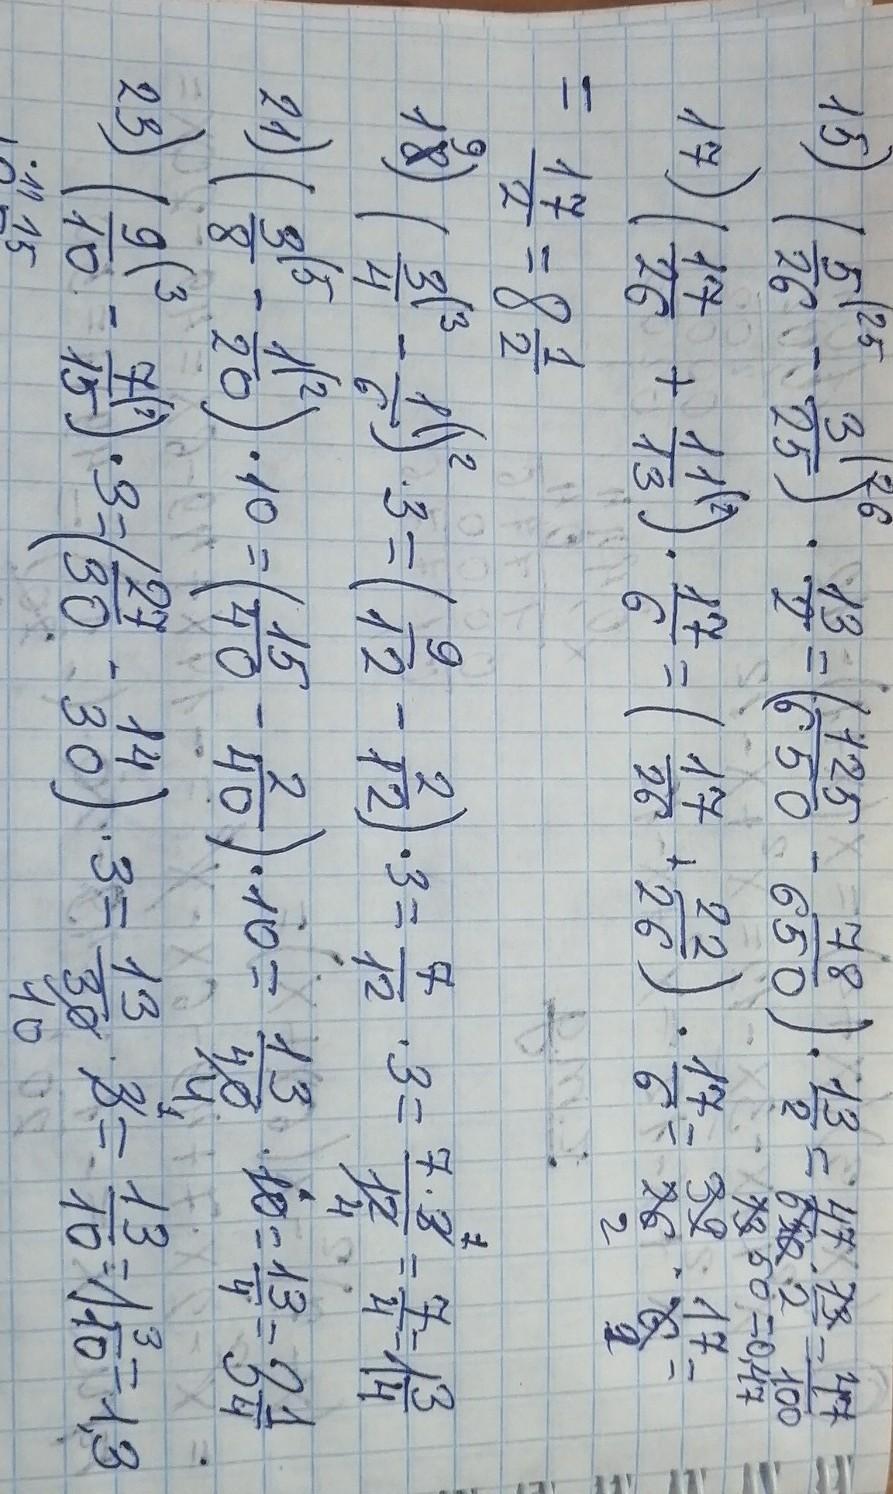 15) (5/26 (25 - 3/25 (26) · 13/2 = (125/650 - 78/650) · 13/2 = 47 · 13 / 650 · 2 = 47/100
13 50 = 0,47
17) (17/26 + 11/13 (2) · 17/6 = (17/26 + 22/26) · 17/6 = 39 · 17 / 26 · 6 =
2 2
= 17/2 = 8 1/2
19) (3/4 (3 - 1/6 (2) · 3 = (9/12 - 2/12) · 3 = 7/12 · 3 = 7 · 3 1 / 12 4 = 7/4 = 1 3/4
21) (3/8 (5 - 1/20 (2) · 10 = (15/40 - 2/40) · 10 = 13/40 4 · 10 1 = 13/4 = 3 1/4
23) (9/10 (3 - 7/15 (2) · 3 = (27/30 - 14/30) · 3 = 13/30 10 · 3 1 = 13/10 = 1 3/10 = 1,3